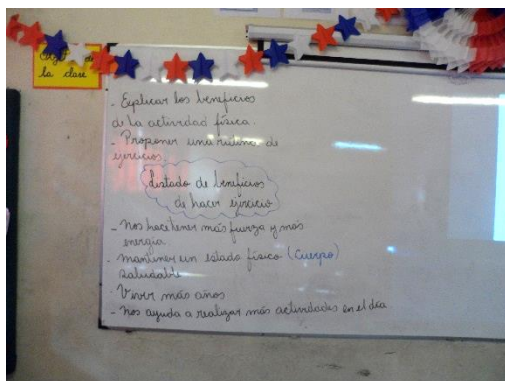 Objetivo de
la clase
- Explicar los beneficios
de la actividad física.
- Proponer una rutina de
ejercicios
Listado de beneficios
de hacer ejercicio
- Nos hace tener más fuerza y más
energía.
- mantener un estado físico (cuerpo)
saludable
- Vivir más años
- nos ayuda a realizar más actividades en el día